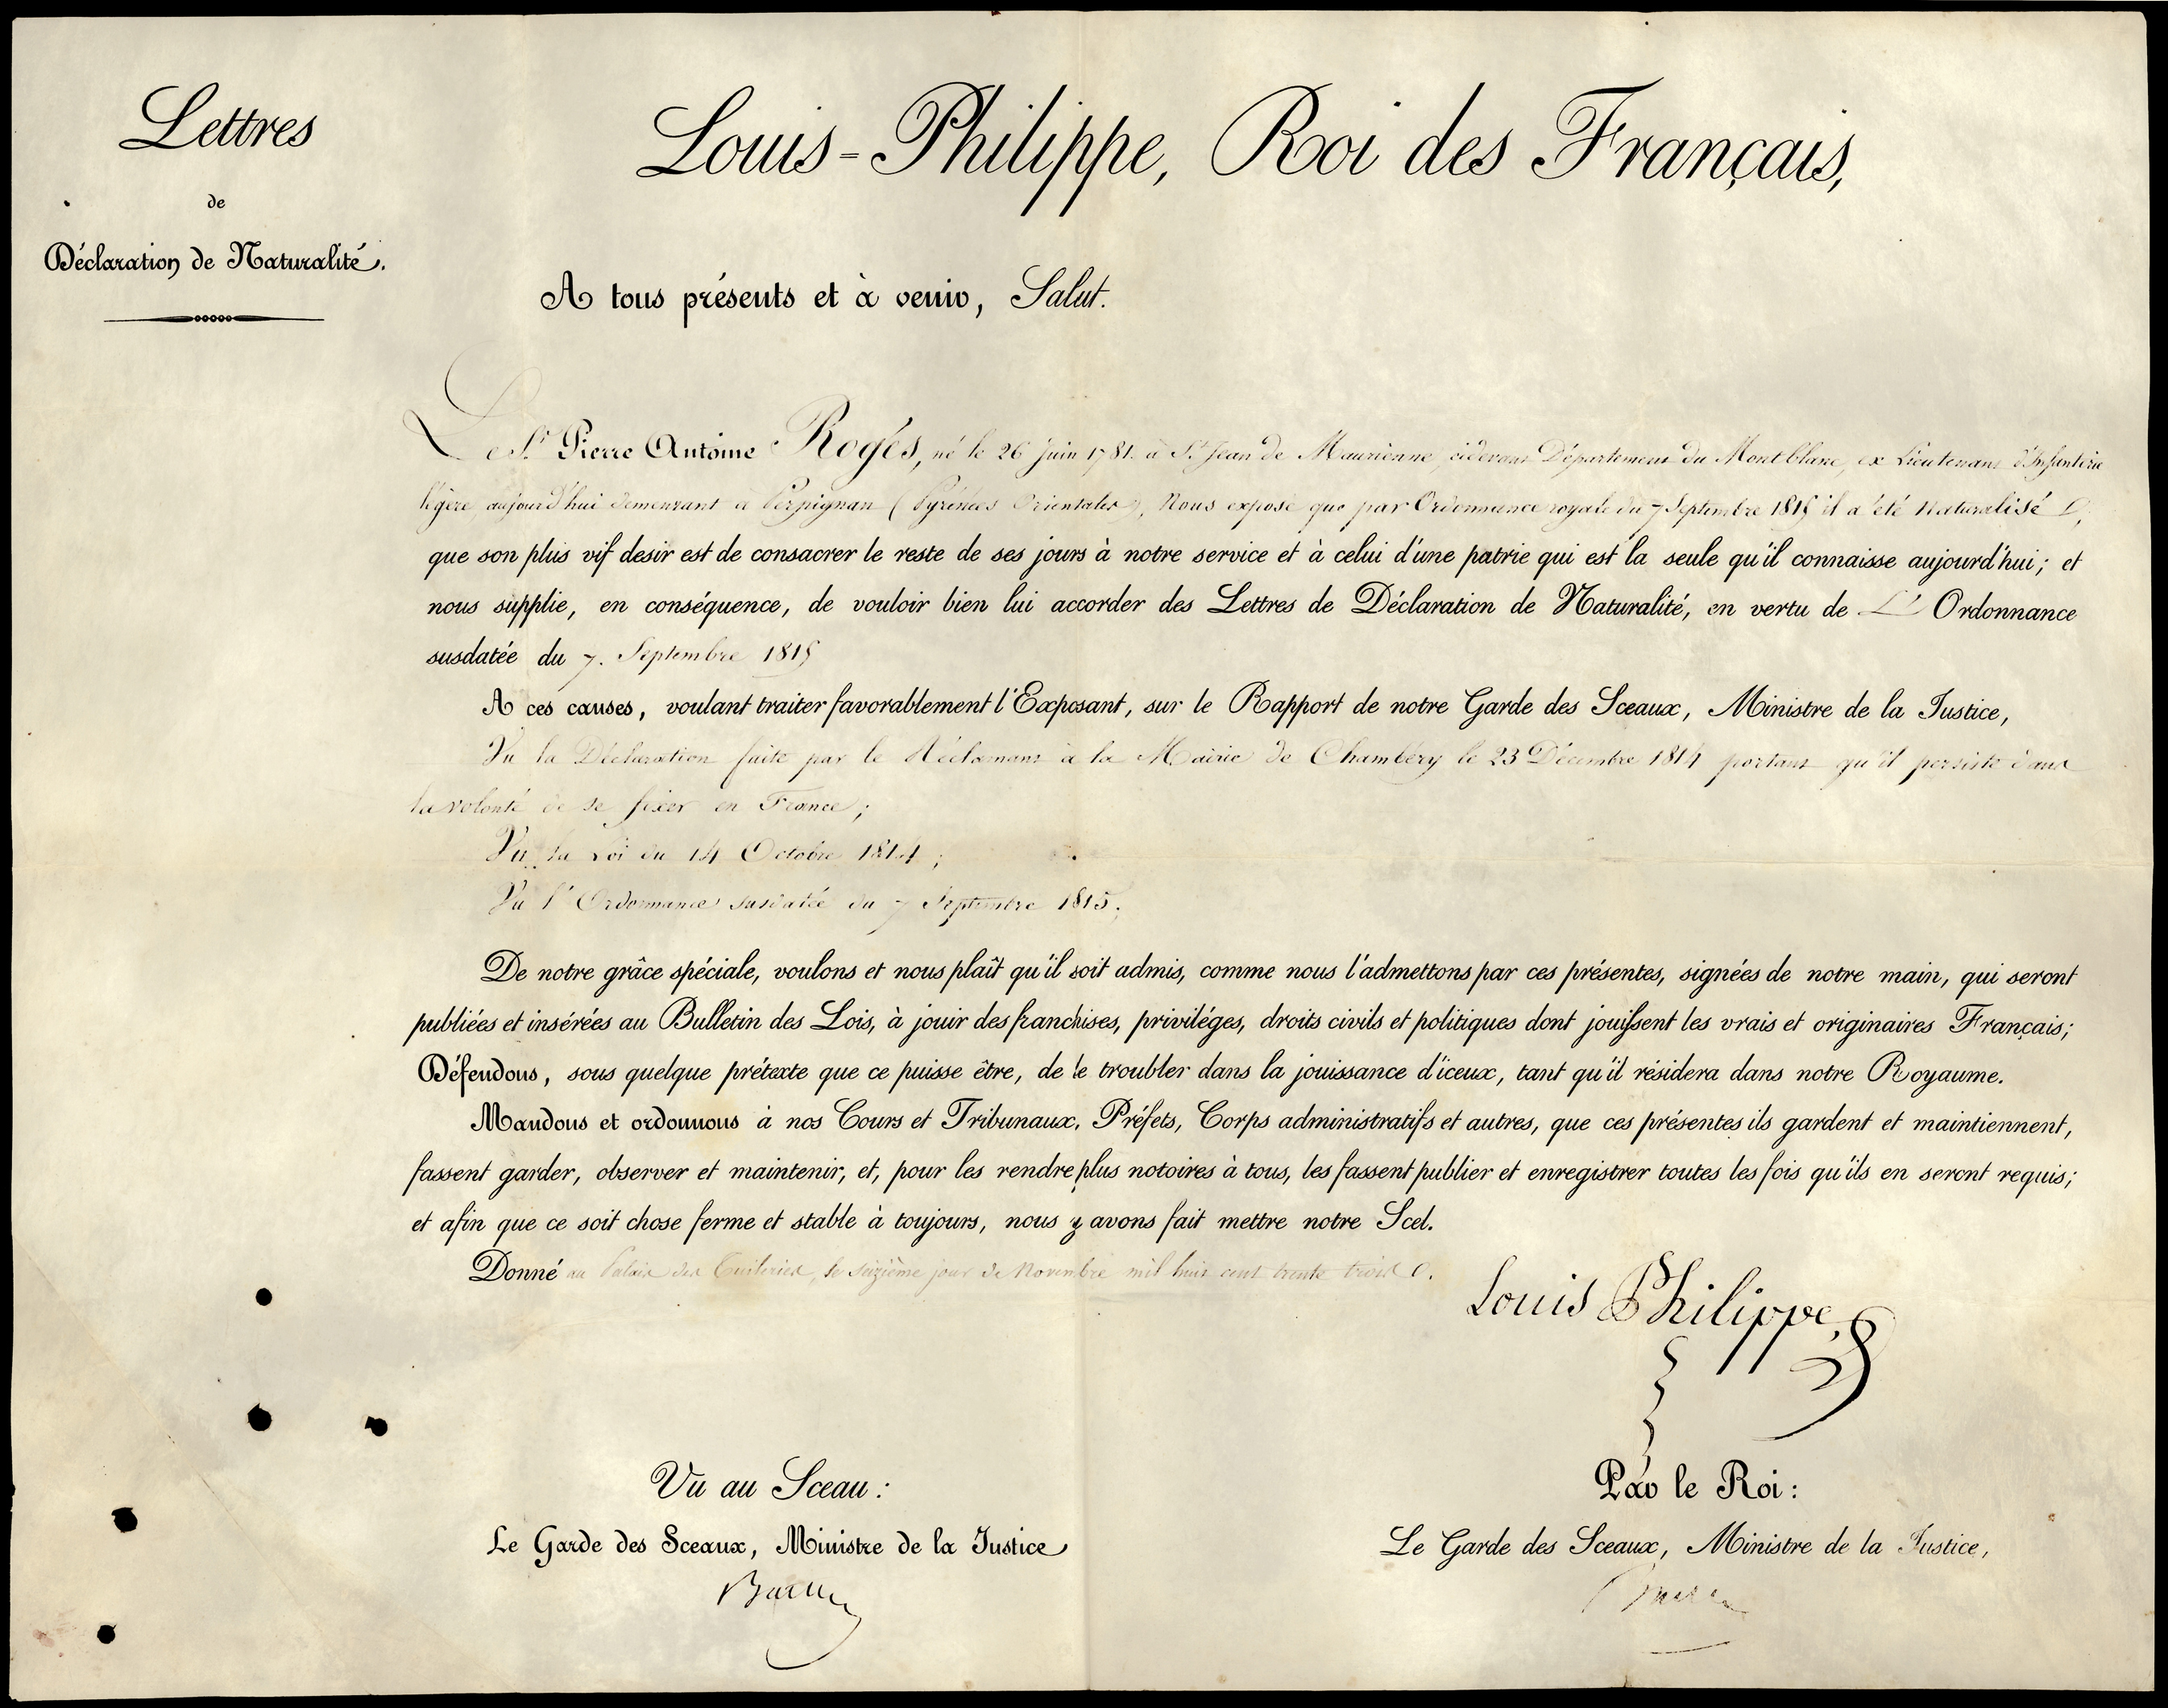 Lettres
de
Déclaration de Naturalité.
Louis-Philippe, Roi des Français,
A tous présents et à venir, Salut.
Le Sr. Pierre Antoine Rogés, né le 26 Juin 1781. à St. Jean de Maurienne, cidevant Département du Montblanc, ex Lieutenant d'Infanterie
légère aujourd'hui demeurant à Perpignan (Pyrénées Orientales), Nous expose que par Ordonnance royale du 7 Septembre 1815 il a été naturalisé
que son plus vif desir est de consacrer le reste de ses jours à notre service et à celui d'une patrie qui est la seule qu'il connaisse aujourd'hui; et
nous supplie, en conséquence, de vouloir bien lui accorder des Lettres de Déclaration de Naturalité, en vertu de L' Ordonnance
susdatée du 7. Septembre 1815
A ces causes, voulant traiter favorablement l'Exposant, sur le Rapport de notre Garde des Sceaux, Ministre de la Justice,
Vu la Déclaration faite par le Réclamant à la Mairie de Chambéry le 23 Décembre 1814 portant qu'il persiste dans
la volonté de se fixer en France;
Vu la Loi du 14 Octobre 1814;
Vu l'Ordonnance susdatée du 7 Septembre 1815;
De notre grâce spéciale, voulons et nous plaît qu'il soit admis, comme nous l'admettons par ces présentes, signées de notre main, qui seront
publiées et insérées au Bulletin des Lois, à jouir des franchises, priviléges, droits civils et politiques dont jouissent les vrais et originaires Français;
Défendons, sous quelque prétexte que ce puisse être, de le troubler dans la jouissance d'iceux, tant qu'il résidera dans notre Royaume.
Mandons et ordonnons à nos Cours et Tribunaux, Préfets, Corps administratifs et autres, que ces présentes ils gardent et maintiennent,
fassent garder, observer et maintenir, et, pour les rendre plus notoires à tous, les fassent publier et enregistrer toutes les fois qu'ils en seront requis;
et afin que ce soit chose ferme et stable à toujours, nous y avons fait mettre notre Scel.
Donné au Palais des Tuileries, le seizième jour de Novembre mil huit cent trente trois.
Louis Philippe
Vu au Sceau:
Le Garde des Sceaux, Ministre de la Justice
Barthe
Par le Roi:
Le Garde des Sceaux, Ministre de la Justice,